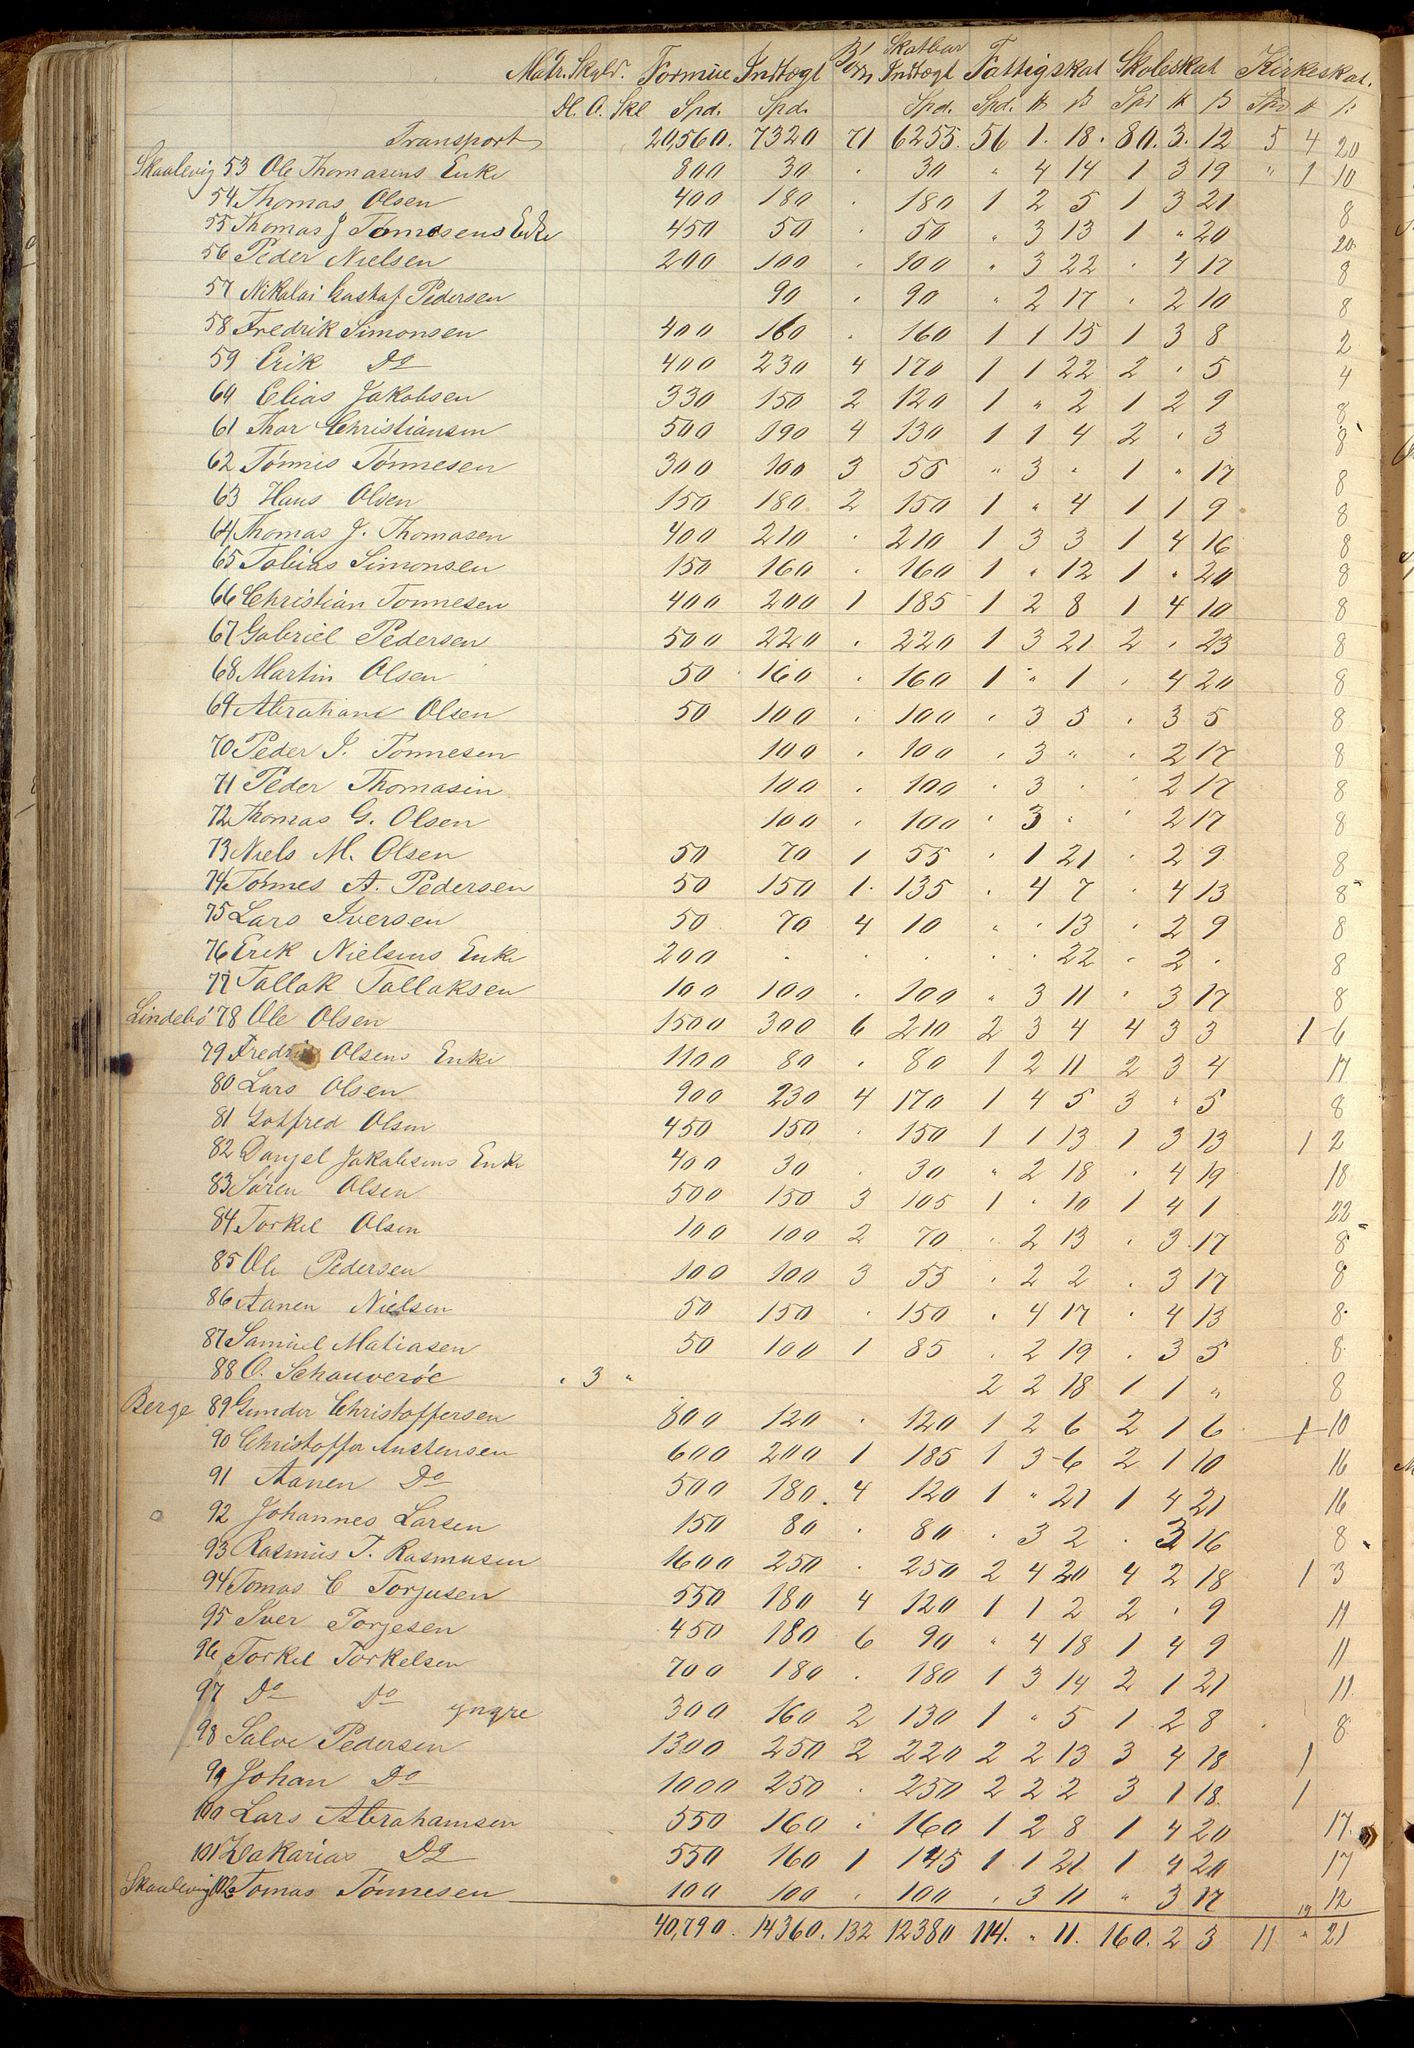 Matr. Skyld. Formue Indtægt Børn Skatbar Indtægt Fattigskat Skoleskat Kirkeskat.
Dl. O. Skl Spd. Spd. Spd. Spd. # β Spd # β Spd # β
Transport 20,560. 7320 71 6255. 56 1. 18. 80. 3. 12 5 4 20
Skaalevig 53 Ole Thomasens Enke 800 30 . 30 " 4 14 1 3 19 " 1 10
54 Thomas Olsen 400 180 . 180 1 2 5 1 3 21 8
55 Thomas J Tomesens Enke 450 50 . 50 " 3 13 1 " 20 20
56 Peder Nielsen 200 100 . 100 " 3 22 . 4 17 8
57 Nikolai Gustaf Pedersen 90 . 90 " 2 17 . 2 10 8
58 Fredrik Simonsen 400 160 . 160 1 1 15 1 3 8 2
59 Erik Do 400 230 4 170 1 1 22 2 . 5 4
60 Elias Jakobsen 330 150 2 120 1 " 2 1 2 9 8
61 Thor Christiansen 500 190 4 130 1 1 4 2 . 3 8
62 Tönnis Tönnesen 300 100 3 55 " 3 " 1 " 17 8
63 Hans Olsen 150 180 2 150 1 " 4 1 1 9 8
64 Thomas J. Thomasen 400 210 . 210 1 3 3 1 4 16 8
65 Tobias Simonsen 150 160 . 160 1 " 12 1 " 20 8
66 Christian Tonnesen 400 200 1 185 1 2 8 1 4 10 8
67 Gabriel Pedersen 500 220 . 220 1 3 21 2 . 23 8
68 Martin Olsen 50 160 . 160 1 " 1 . 4 20 8
69 Abraham Olsen 50 100 . 100 . 3 5 . 3 5 8
70 Peder J. Tonnesen 100 . 100 . 3 " . 2 17 8
71 Peder Thomasen 100 . 100 . 3 . . 2 17 8
72 Thomas G. Olsen 100 . 100 . 3 " . 2 17 8
73 Niels M. Olsen 50 70 1 55 . 1 21 . 2 9 8
74 Tönnes A. Pedersen 50 150 1. 135 . 4 7 . 4 13 8
75 Lars Iversen 50 70 4 10 " . 13 . 2 9 8
76 Erik Nielsens Enke 200 . . . . . 22 . 2 . 8
77 Tallak Tallaksen 100 100 . 100 " 3 11 . 3 17 8
Lindebö 78 Ole Olsen 1500 300 6 210 2 3 4 4 3 3 1 6
79 Fredrik Olsens Enke 1100 80 . 80 1 2 11 2 3 4 17
80 Lars Olsen 900 230 4 170 1 4 5 3 " 5 8
81 Gotfred Olsen 450 150 . 150 1 1 13 1 3 13 1 2
82 Danjel Jakobsens Enke 400 30 . 30 " 2 18 . 4 19 18
83 Sören Olsen 500 150 3 105 1 . 10 1 4 1 22
84 Torkel Olsen 100 100 2 70 . 2 13 . 3 17 8
85 Ole Pedersen 100 100 3 55 . 2 2 . 3 17 8
86 Aanen Nielsen 50 150 . 150 . 4 17 . 4 13 8
87 Samuel Matiasen 50 100 1 85 . 2 19 . 3 5 8
88 O. Schauveröe . 3 " 2 2 18 1 1 " 8
Berge 89 Gunder Christoffersen 800 120 . 120 1 2 6 2 1 6 1 10
90 Christoffer Austensen 600 200 1 185 1 3 6 2 1 10 16
91 Aanen Do 500 180. 4 120 1 " 21 1 4 21 16
92 Johannes Larsen 150 80 . 80 . 3 2 . 3 16 8
93 Rasmus T. Rasmusen 1600 250 . 250 2 4 20 4 2 18 1 3
94 Tomas C Torjusen 550 180 4 120 1 1 2 2 . 9 11
95 Iver Torjesen 450 180 6 90 " 4 18 1 4 9 11
96 Torkel Torkelsen 700 180 . 180 1 3 14 2 1 21 11
97 Do Do yngre 300 160 2 130 1 " 5 1 2 8 8
98 Salve Pedersen 1300 250 2 220 2 2 13 3 4 18 1
99 Johan Do 1000 250 . 250 2 2 2 3 1 18 1
100 Lars Abrahamsen 550 160 . 160 1 2 8 1 4 20 17
101 Zakarias Do 550 160 1 145 1 1 21 1 4 20 17
Skaalevig 102 Tomas Tönnesen 100 100 . 100 . 3 11 " 3 17 12
19
40,790. 14360. 132 12380 114. " 11. 160. 2 3 11 " 21